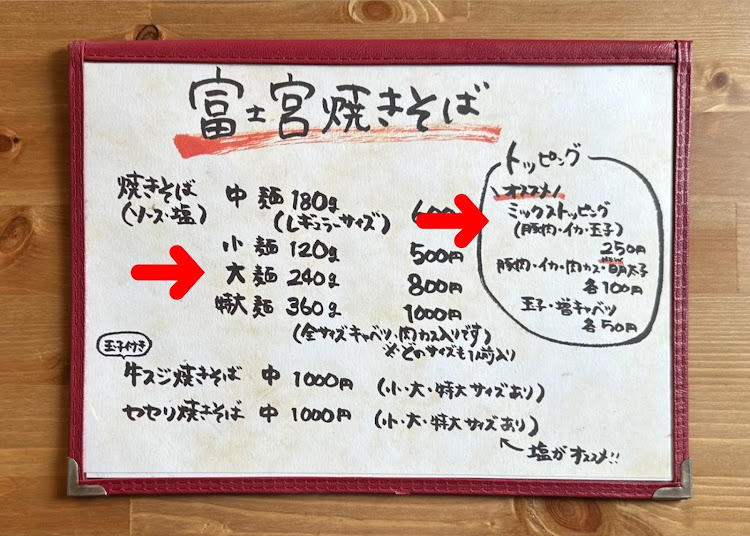 富士宮焼きそば
焼きそば
(ソース・塩)
中 麺 180g
(レギュラーサイズ)
小 麺 120g 500円
大 麺 240g 800円
特大 麺 360g 1000円
(全サイズキャベツ、肉カス入りです)
※どのサイズも1人前入り
玉子付き
牛スジ焼きそば 中 1000円 (小・大・特大サイズあり)
セセリ焼きそば 中 1000円 (小・大・特大サイズあり)
塩がオススメ!!
トッピング
\オススメ/
ミックストッピング
(豚肉・イカ・玉子)
250円
豚肉・イカ・肉カス・明太子
各100円
玉子・増キャベツ
各50円